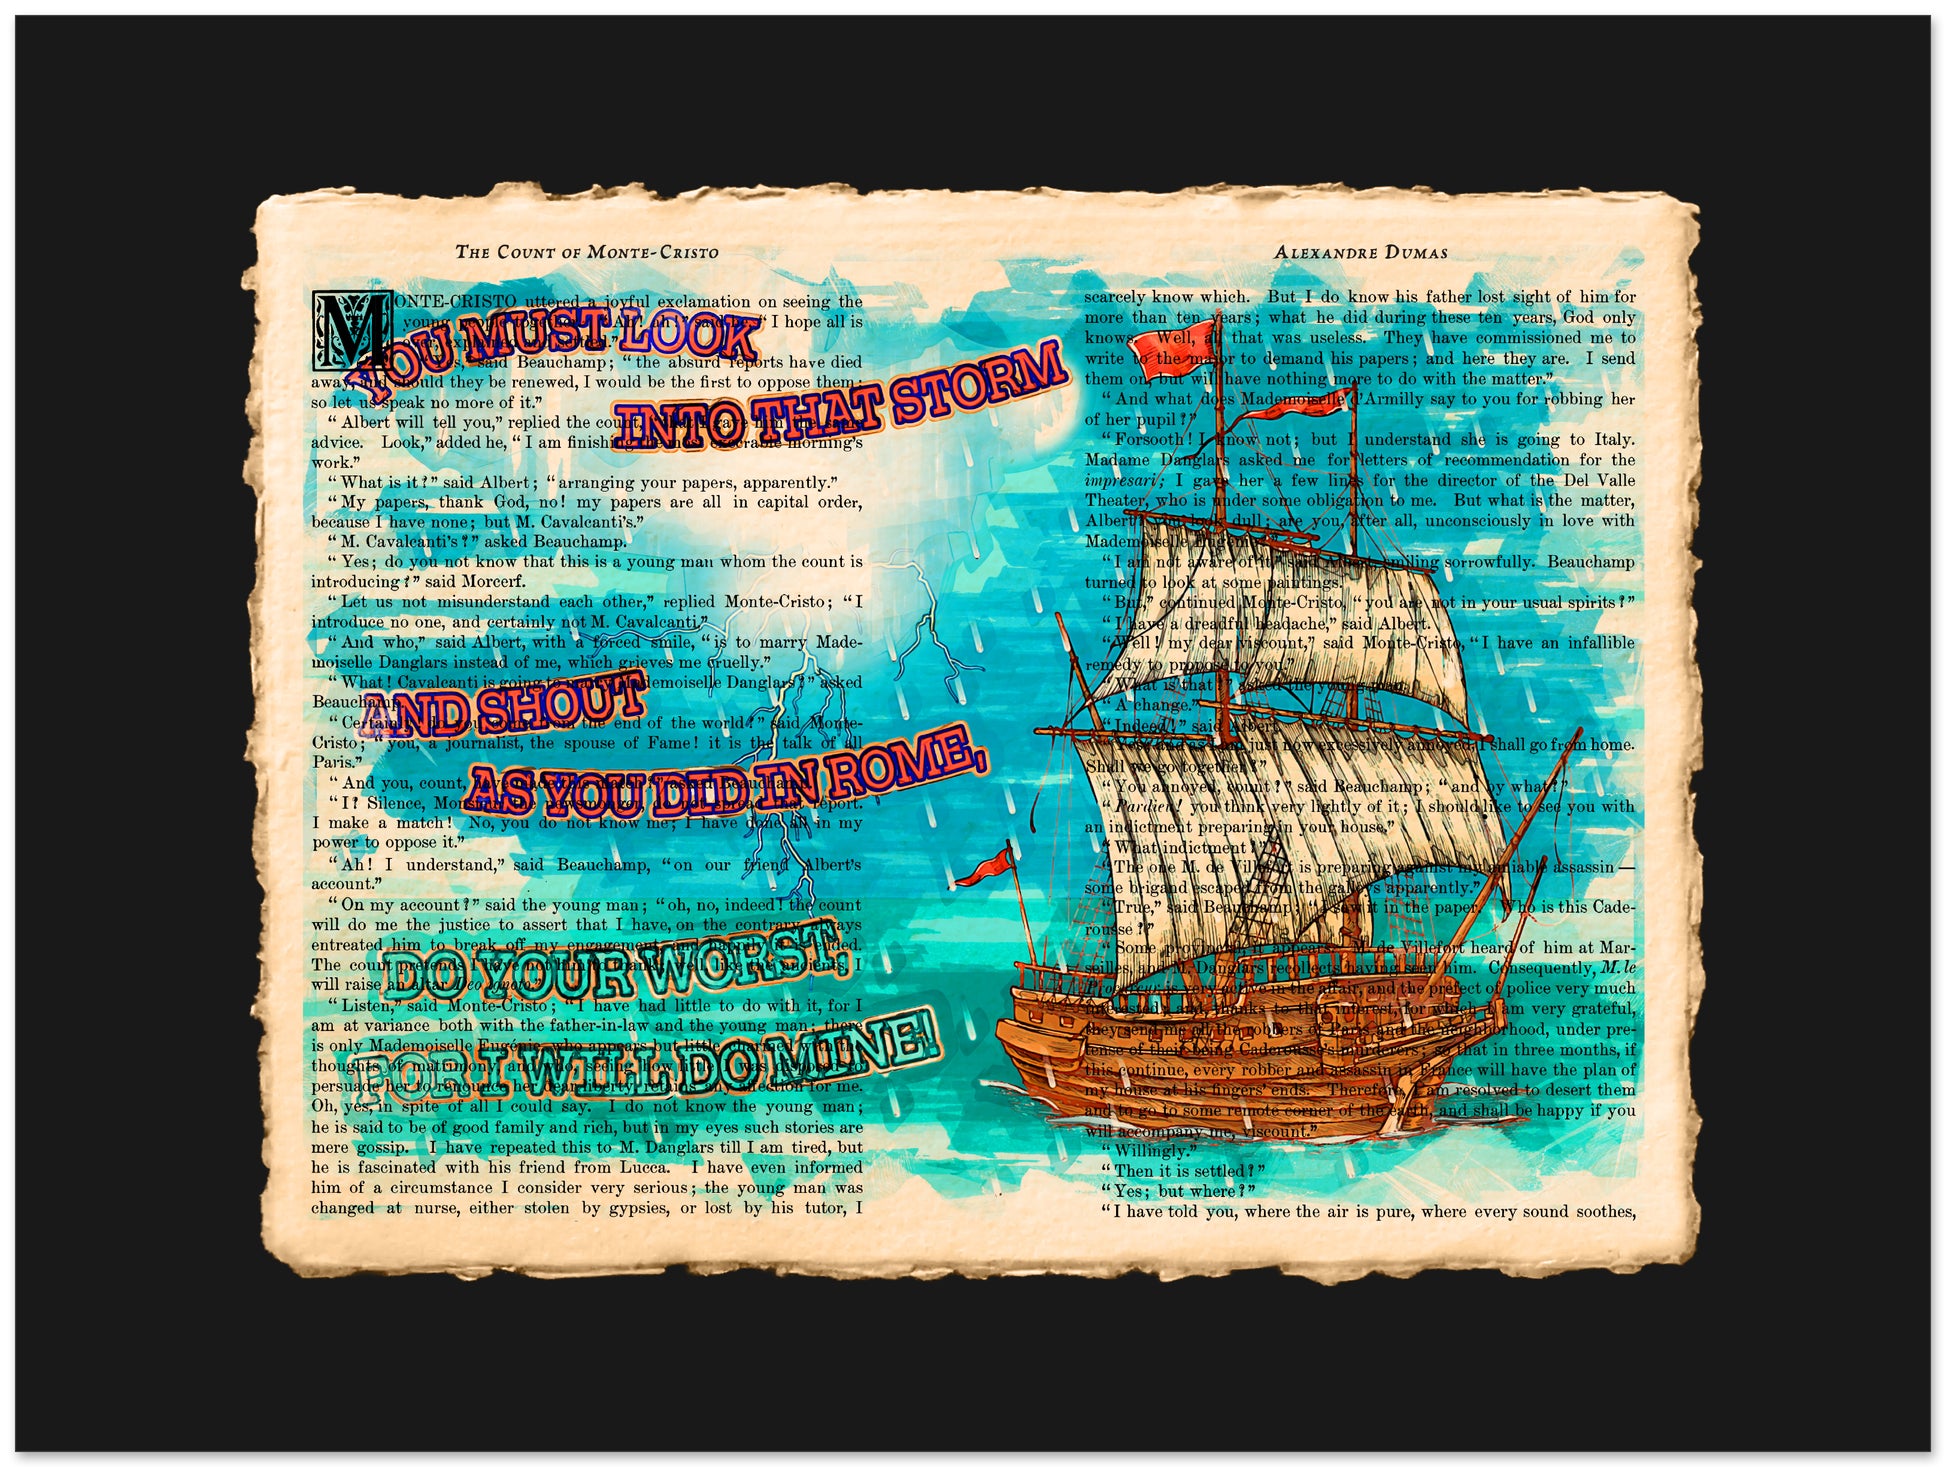 The Count of Monte-Cristo
Alexandre Dumas
YOU MUST LOOK
INTO THAT STORM
AND SHOUT
AS YOU DID IN ROME,
DO YOUR WORST,
FOR I WILL DO MINE!
MONTE-CRISTO uttered a joyful exclamation on seeing the
young people together. “Ah! ah!” said he, “I hope all is
over, explained and settled.”
“Yes,” said Beauchamp; “the absurd reports have died
away, and should they be renewed, I would be the first to oppose them;
so let us speak no more of it.”
“Albert will tell you,” replied the count, “that I gave him the same
advice. Look,” added he, “I am finishing the most execrable morning’s
work.”
“What is it?” said Albert; “arranging your papers, apparently.”
“My papers, thank God, no! my papers are all in capital order,
because I have none; but M. Cavalcanti’s.”
“M. Cavalcanti’s?” asked Beauchamp.
“Yes; do you not know that this is a young man whom the count is
introducing?” said Morcerf.
“Let us not misunderstand each other,” replied Monte-Cristo; “I
introduce no one, and certainly not M. Cavalcanti.”
“And who,” said Albert, with a forced smile, “is to marry Made-
moiselle Danglars instead of me, which grieves me cruelly.”
“What! Cavalcanti is going to marry Mademoiselle Danglars?” asked
Beauchamp.
“Certainly! do you come from the end of the world?” said Monte-
Cristo; “you, a journalist, the spouse of Fame! it is the talk of all
Paris.”
“And you, count, have made this match?” asked Beauchamp.
“I? Silence, Monsieur the newsmonger, do not spread that report.
I make a match! No, you do not know me; I have done all in my
power to oppose it.”
“Ah! I understand,” said Beauchamp, “on our friend Albert’s
account.”
“On my account?” said the young man; “oh, no, indeed! the count
will do me the justice to assert that I have, on the contrary, always
entreated him to break off my engagement, and happily it is ended.
The count pretends I have not him to thank; well, like the ancients, I
will raise an altar Deo ignoto.”
“Listen,” said Monte-Cristo; “I have had little to do with it, for I
am at variance both with the father-in-law and the young man; there
is only Mademoiselle Eugénie, who appears but little charmed with the
thoughts of matrimony, and who, seeing how little I was disposed to
persuade her to renounce her dear liberty, retains any affection for me.
Oh, yes, in spite of all I could say. I do not know the young man;
he is said to be of good family and rich, but in my eyes such stories are
mere gossip. I have repeated this to M. Danglars till I am tired, but
he is fascinated with his friend from Lucca. I have even informed
him of a circumstance I consider very serious; the young man was
changed at nurse, either stolen by gypsies, or lost by his tutor, I
scarcely know which. But I do know his father lost sight of him for
more than ten years; what he did during these ten years, God only
knows. Well, all that was useless. They have commissioned me to
write to the major to demand his papers; and here they are. I send
them on, but will have nothing more to do with the matter.”
“And what does Mademoiselle d’Armilly say to you for robbing her
of her pupil?”
“Forsooth! I know not; but I understand she is going to Italy.
Madame Danglars asked me for letters of recommendation for the
impresari; I gave her a few lines for the director of the Del Valle
Theater, who is under some obligation to me. But what is the matter,
Albert? you look dull; are you, after all, unconsciously in love with
Mademoiselle Eugénie?”
“I am not aware of it,” said Albert, smiling sorrowfully. Beauchamp
turned to look at some paintings.
“But,” continued Monte-Cristo, “you are not in your usual spirits?”
“I have a dreadful headache,” said Albert.
“Well! my dear viscount,” said Monte-Cristo, “I have an infallible
remedy to propose to you.”
“What is that?” asked the young man.
“A change.”
“Indeed!” said Albert.
“Yes; and as I am just now excessively annoyed, I shall go from home.
Shall we go together?”
“You annoyed, count?” said Beauchamp; “and by what?”
“Pardieu! you think very lightly of it; I should like to see you with
an indictment preparing in your house.”
“What indictment?”
“The one M. de Villefort is preparing against my amiable assassin —
some brigand escaped from the galleys apparently.”
“True,” said Beauchamp; “I saw it in the paper. Who is this Cade-
rousse?”
“Some provincial, it appears. M. de Villefort heard of him at Mar-
seilles, and M. Danglars recollects having seen him. Consequently, M. le
Procureur is very active in the affair, and the prefect of police very much
interested; and, thanks to that interest, for which I am very grateful,
they send me all the robbers of Paris and the neighborhood, under pre-
tense of their being Caderousse’s murderers; so that in three months, if
this continue, every robber and assassin in France will have the plan of
my house at his fingers’ ends. Therefore, I am resolved to desert them
and to go to some remote corner of the earth, and shall be happy if you
will accompany me, viscount.”
“Willingly.”
“Then it is settled?”
“Yes; but where?”
“I have told you, where the air is pure, where every sound soothes,